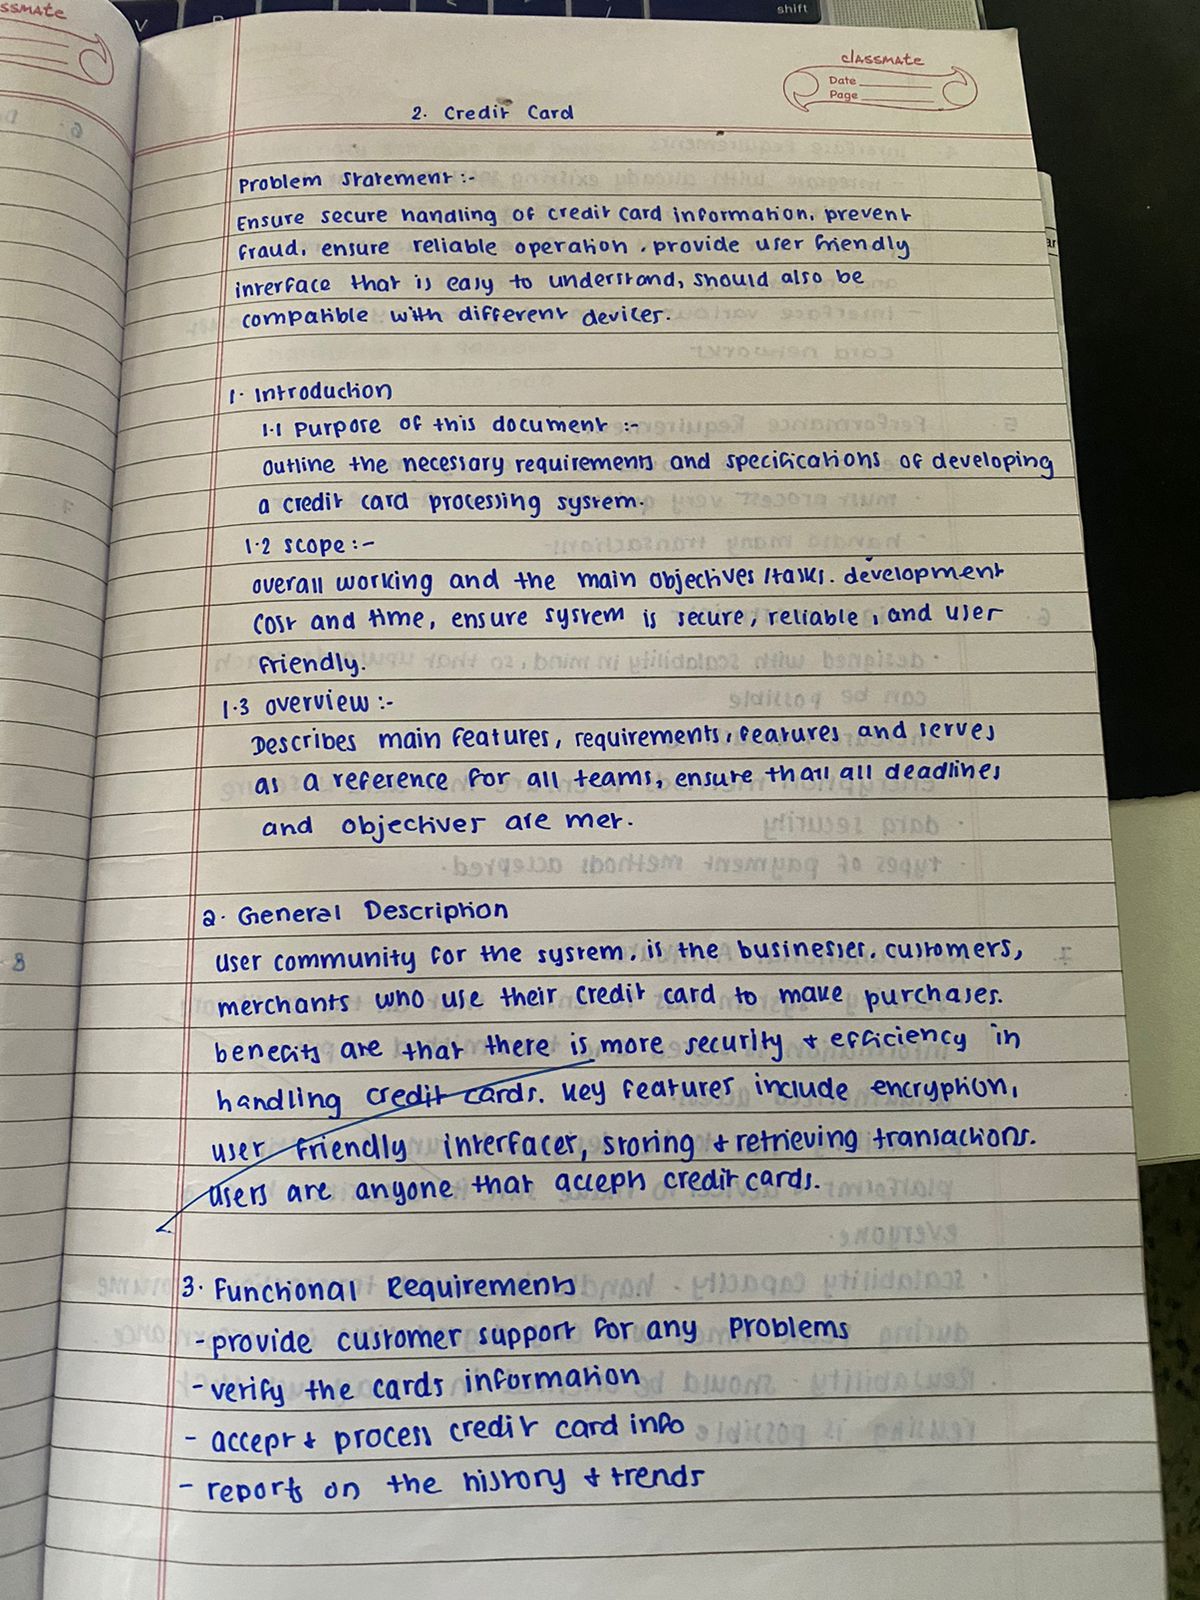 ssmate
shift
classmate
Date
Page
2. Credit Card
Problem Statement :-
Ensure secure handling of credit card information, prevent
fraud, ensure reliable operation, provide user friendly
interface that is easy to understand, should also be
compatible with different devices.
1. Introduction
1.1 Purpose of this document :-
Outline the necessary requirements and specifications of developing
a credit card processing system.
1.2 scope :-
overall working and the main objectives/tasks. development
cost and time, ensure system is secure, reliable, and user
friendly.
1.3 overview :-
Describes main features, requirements, features and serves
as a reference for all teams, ensure that all deadlines
and objectives are met.
2. General Description
User community for the system, is the businesses, customers,
merchants who use their credit card to make purchases.
benefits are that there is more security & efficiency in
handling credit cards. key features include encryption,
user friendly interfaces, storing & retrieving transactions.
users are anyone that accepts credit cards.
3. Functional Requirements
- provide customer support for any problems
- verify the cards information
- accept & process credit card info
- reports on the history & trends